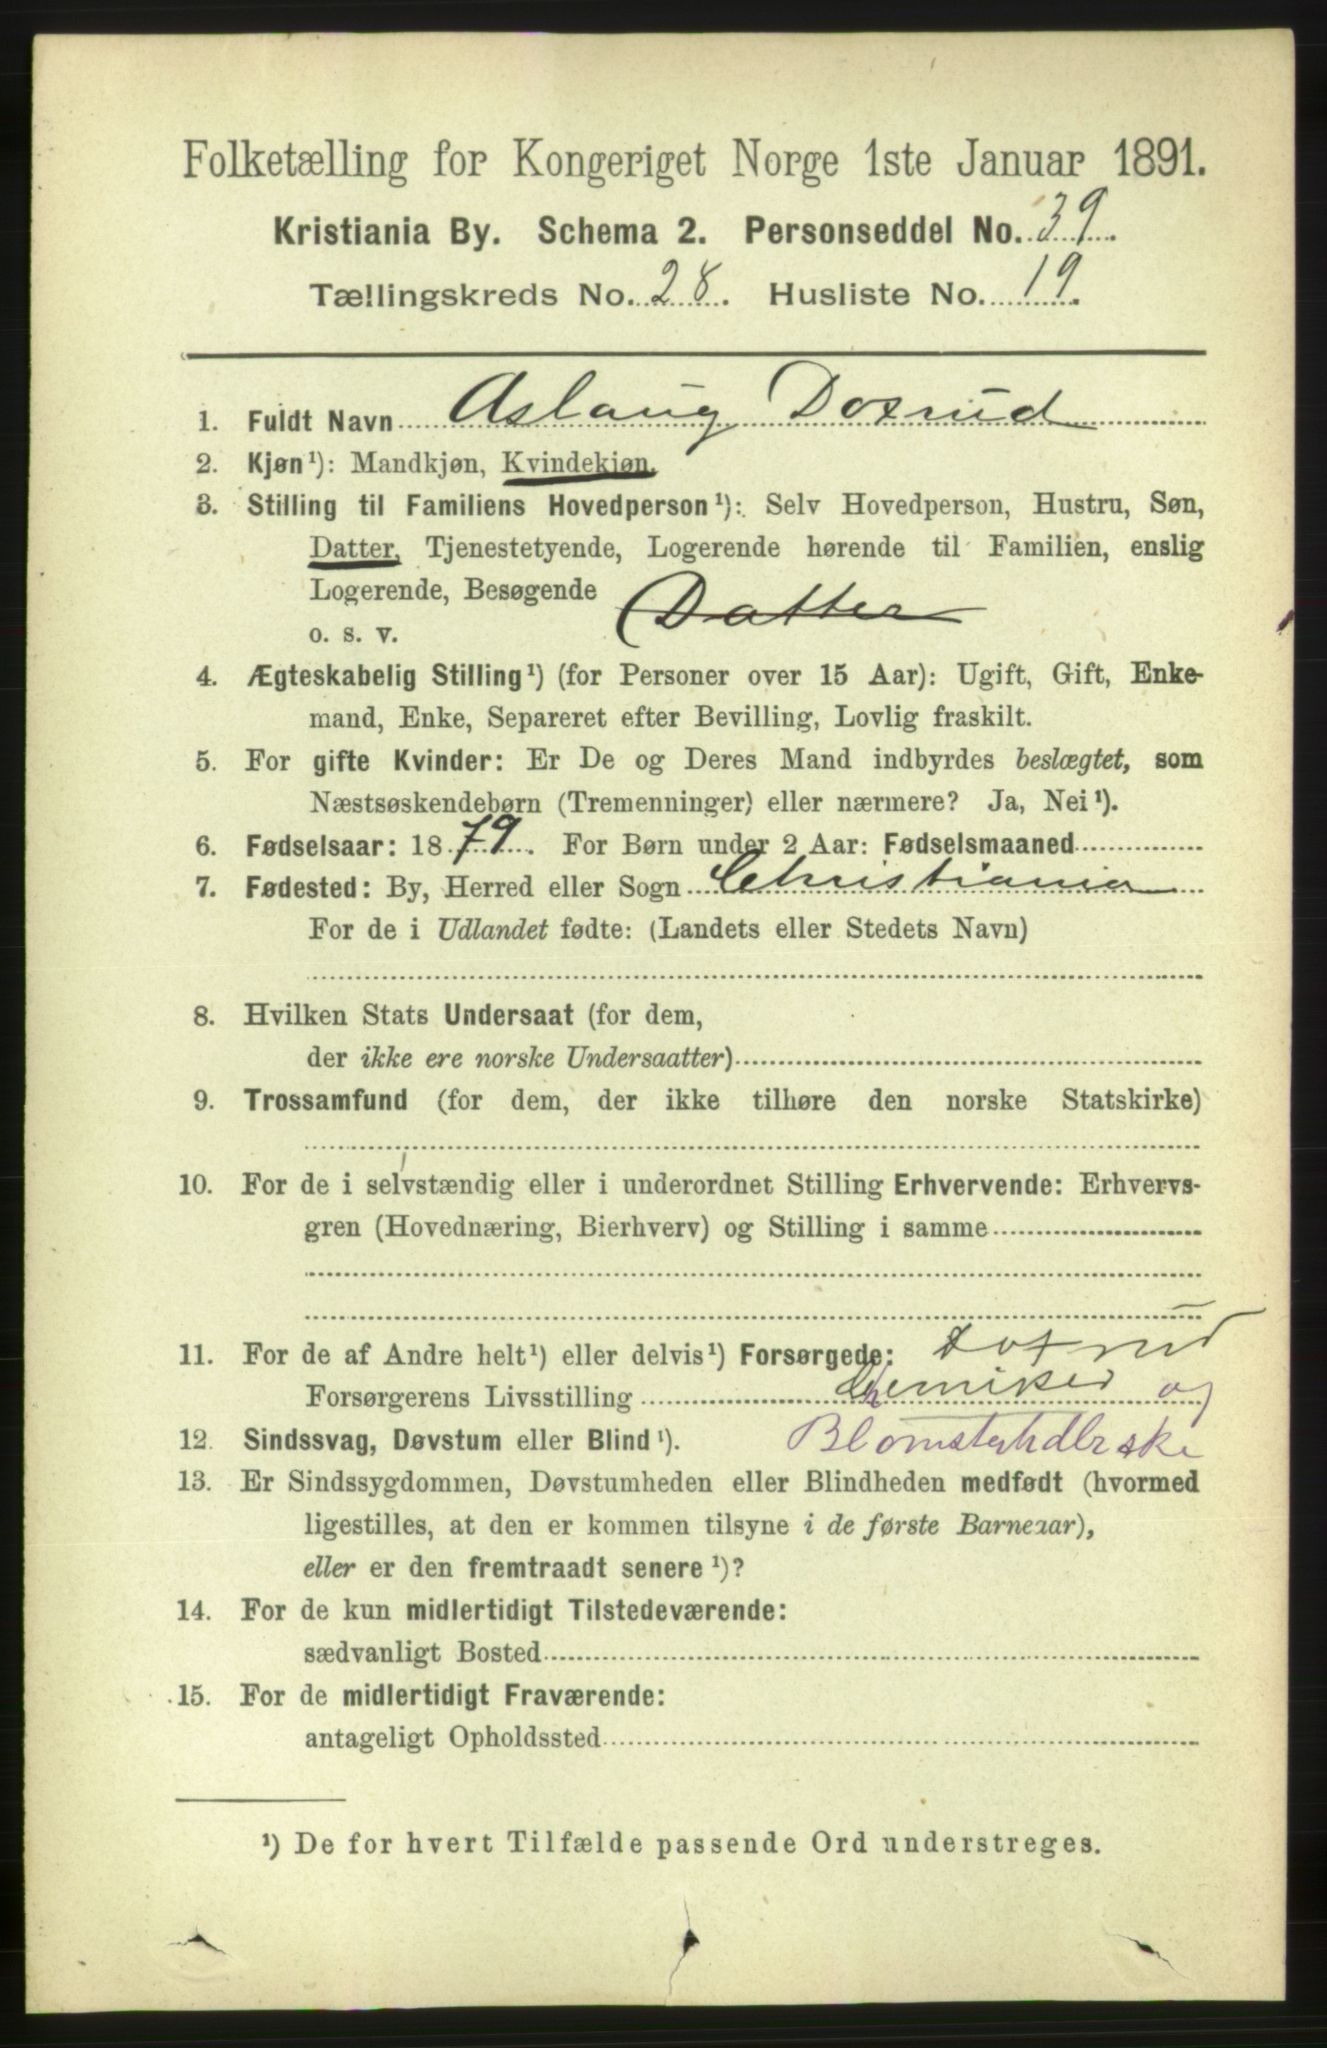 Folketælling for Kongeriget Norge 1ste Januar 1891.
Kristiania By. Schema 2. Personseddel No. 39.
Tællingskreds No. 28. Husliste No. 19.
1. Fuldt Navn Aslaug Doxrud
2. Kjøn¹): Mandkjøn, Kvindekjøn.
3. Stilling til Familiens Hovedperson¹): Selv Hovedperson, Hustru, Søn,
Datter, Tjenestetyende, Logerende hørende til Familien, enslig
Logerende, Besøgende
o. s. v. Datter
4. Ægteskabelig Stilling¹) (for Personer over 15 Aar): Ugift, Gift, Enke-
mand, Enke, Separeret efter Bevilling, Lovlig fraskilt.
5. For gifte Kvinder: Er De og Deres Mand indbyrdes beslægtet, som
Næstsøskendebørn (Tremenninger) eller nærmere? Ja, Nei¹).
6. Fødselsaar: 1879. For Børn under 2 Aar: Fødselsmaaned
7. Fødested: By, Herred eller Sogn Christiania
For de i Udlandet fødte: (Landets eller Stedets Navn)
8. Hvilken Stats Undersaat (for dem,
der ikke ere norske Undersaatter)
9. Trossamfund (for dem, der ikke tilhøre den norske Statskirke)
10. For de i selvstændig eller i underordnet Stilling Erhvervende: Erhvervs-
gren (Hovednæring, Bierhverv) og Stilling i samme
11. For de af Andre helt¹) eller delvis¹) Forsørgede: Doxrud
Forsørgerens Livsstilling Chemiker og
12. Sindssvag, Døvstum eller Blind¹).
13. Er Sindssygdommen, Døvstumheden eller Blindheden medfødt (hvormed
ligestilles, at den er kommen tilsyne i de første Barneaar),
eller er den fremtraadt senere¹)?
14. For de kun midlertidigt Tilstedeværende:
sædvanligt Bosted
15. For de midlertidigt Fraværende:
antageligt Opholdssted
¹) De for hvert Tilfælde passende Ord understreges.